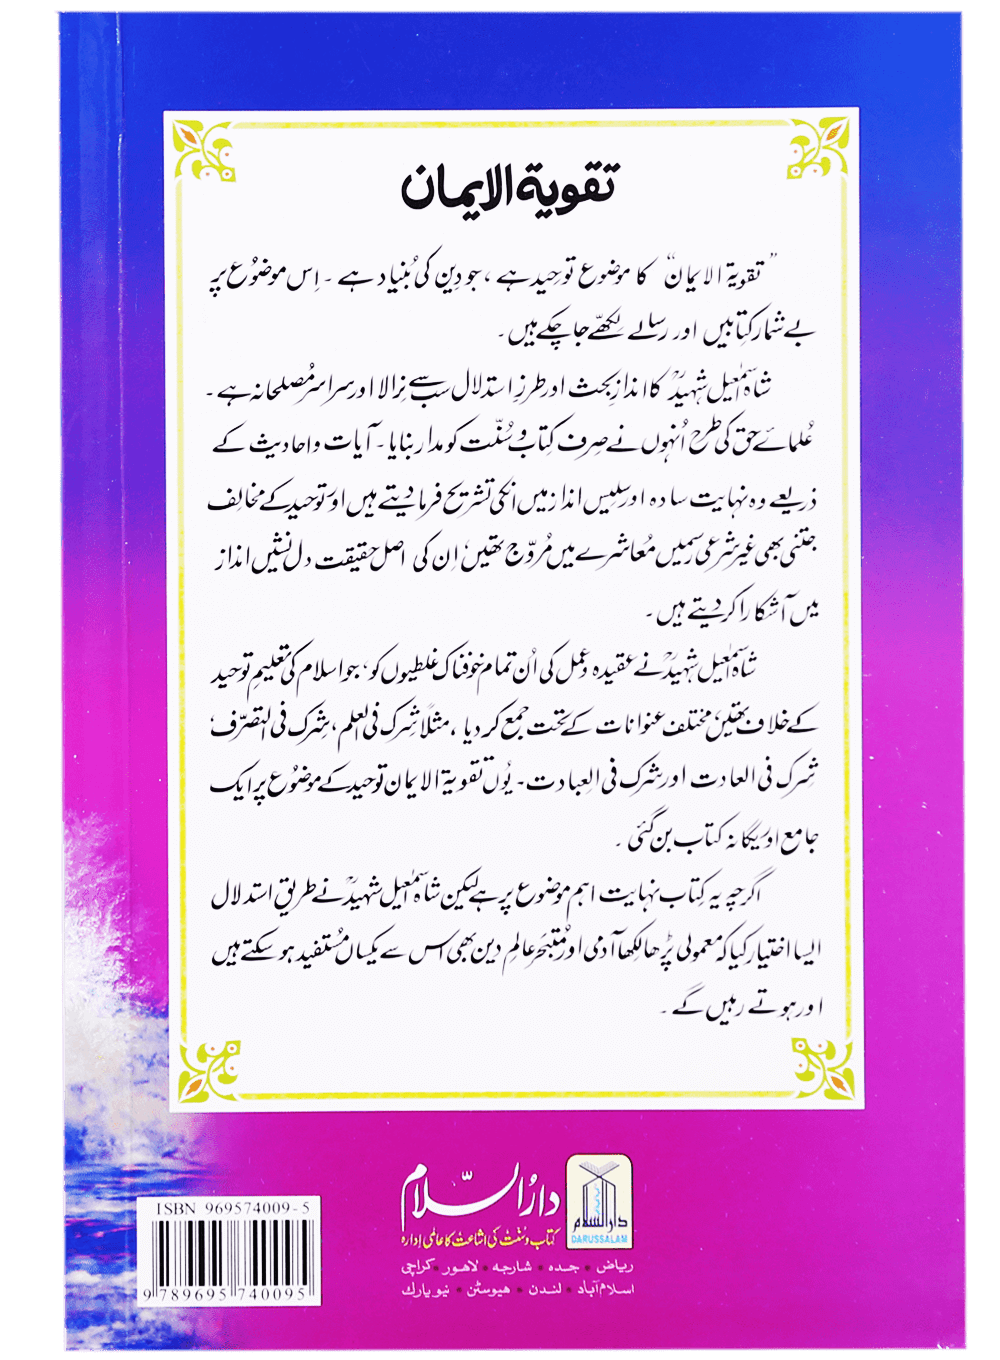 تقویۃ الایمان
”تقویۃ الایمان“ کا موضوع توحید ہے، جو دِین کی بُنیاد ہے۔ اِس موضُوع پر
بے شمار کِتابیں اور رسالے لِکھّے جا چکے ہیں۔
شاہ اسمٰعیل شہیدؒ کا اندازِ بحث اور طرزِ استدلال سب سے نِرالا اور سراسر مُصلحانہ ہے۔
عُلمائے حق کی طرح اُنہوں نے صِرف کِتاب و سُنّت کو مدار بنایا۔ آیات و احادیث کے
ذریعے وہ نہایت سادہ اور سلیس انداز میں انکی تشریح فرما دیتے ہیں اور توحید کے مخالِف
جتنی بھی غیر شرعی رسمیں مُعاشرے میں مُروّج تھیں، اِن کی اصل حقیقت دل نشیں انداز
میں آشکارا کر دیتے ہیں۔
شاہ اسمٰعیل شہیدؒ نے عقیدہ و عمل کی اُن تمام خوفناک غلطیوں کو، جو اسلام کی تعلیمِ توحید
کے خلاف تھیں، مختلف عنوانات کے تحت جمع کر دیا، مثلاً شِرک فی العلم، شِرک فی التصرّف،
شِرک فی العادت اور شرک فی العِبادت۔ یُوں تقویۃ الایمان توحید کے موضُوع پر ایک
جامع اور یگانہ کتاب بن گئی۔
اگرچہ یہ کِتاب نہایت اہم موضوع پر ہے لیکن شاہ اسمٰعیل شہیدؒ نے طریقِ استدلال
ایسا اختیار کیا کہ معمولی پڑھا لِکھا آدمی اور مُتبحّر عالِمِ دین بھی اس سے یکساں مُستفید ہو سکتے ہیں
اور ہوتے رہیں گے۔
دارُالسّلام
کتاب و سُنّت کی اشاعت کا عالمی اِدارہ
دارالسلام
DARUSSALAM
ریاض • جدہ • شارجہ • لاهور • کراچی
اسلام آباد • لندن • هیوسٹن • نیو یارك
ISBN 969574009-5
9 789695 740095